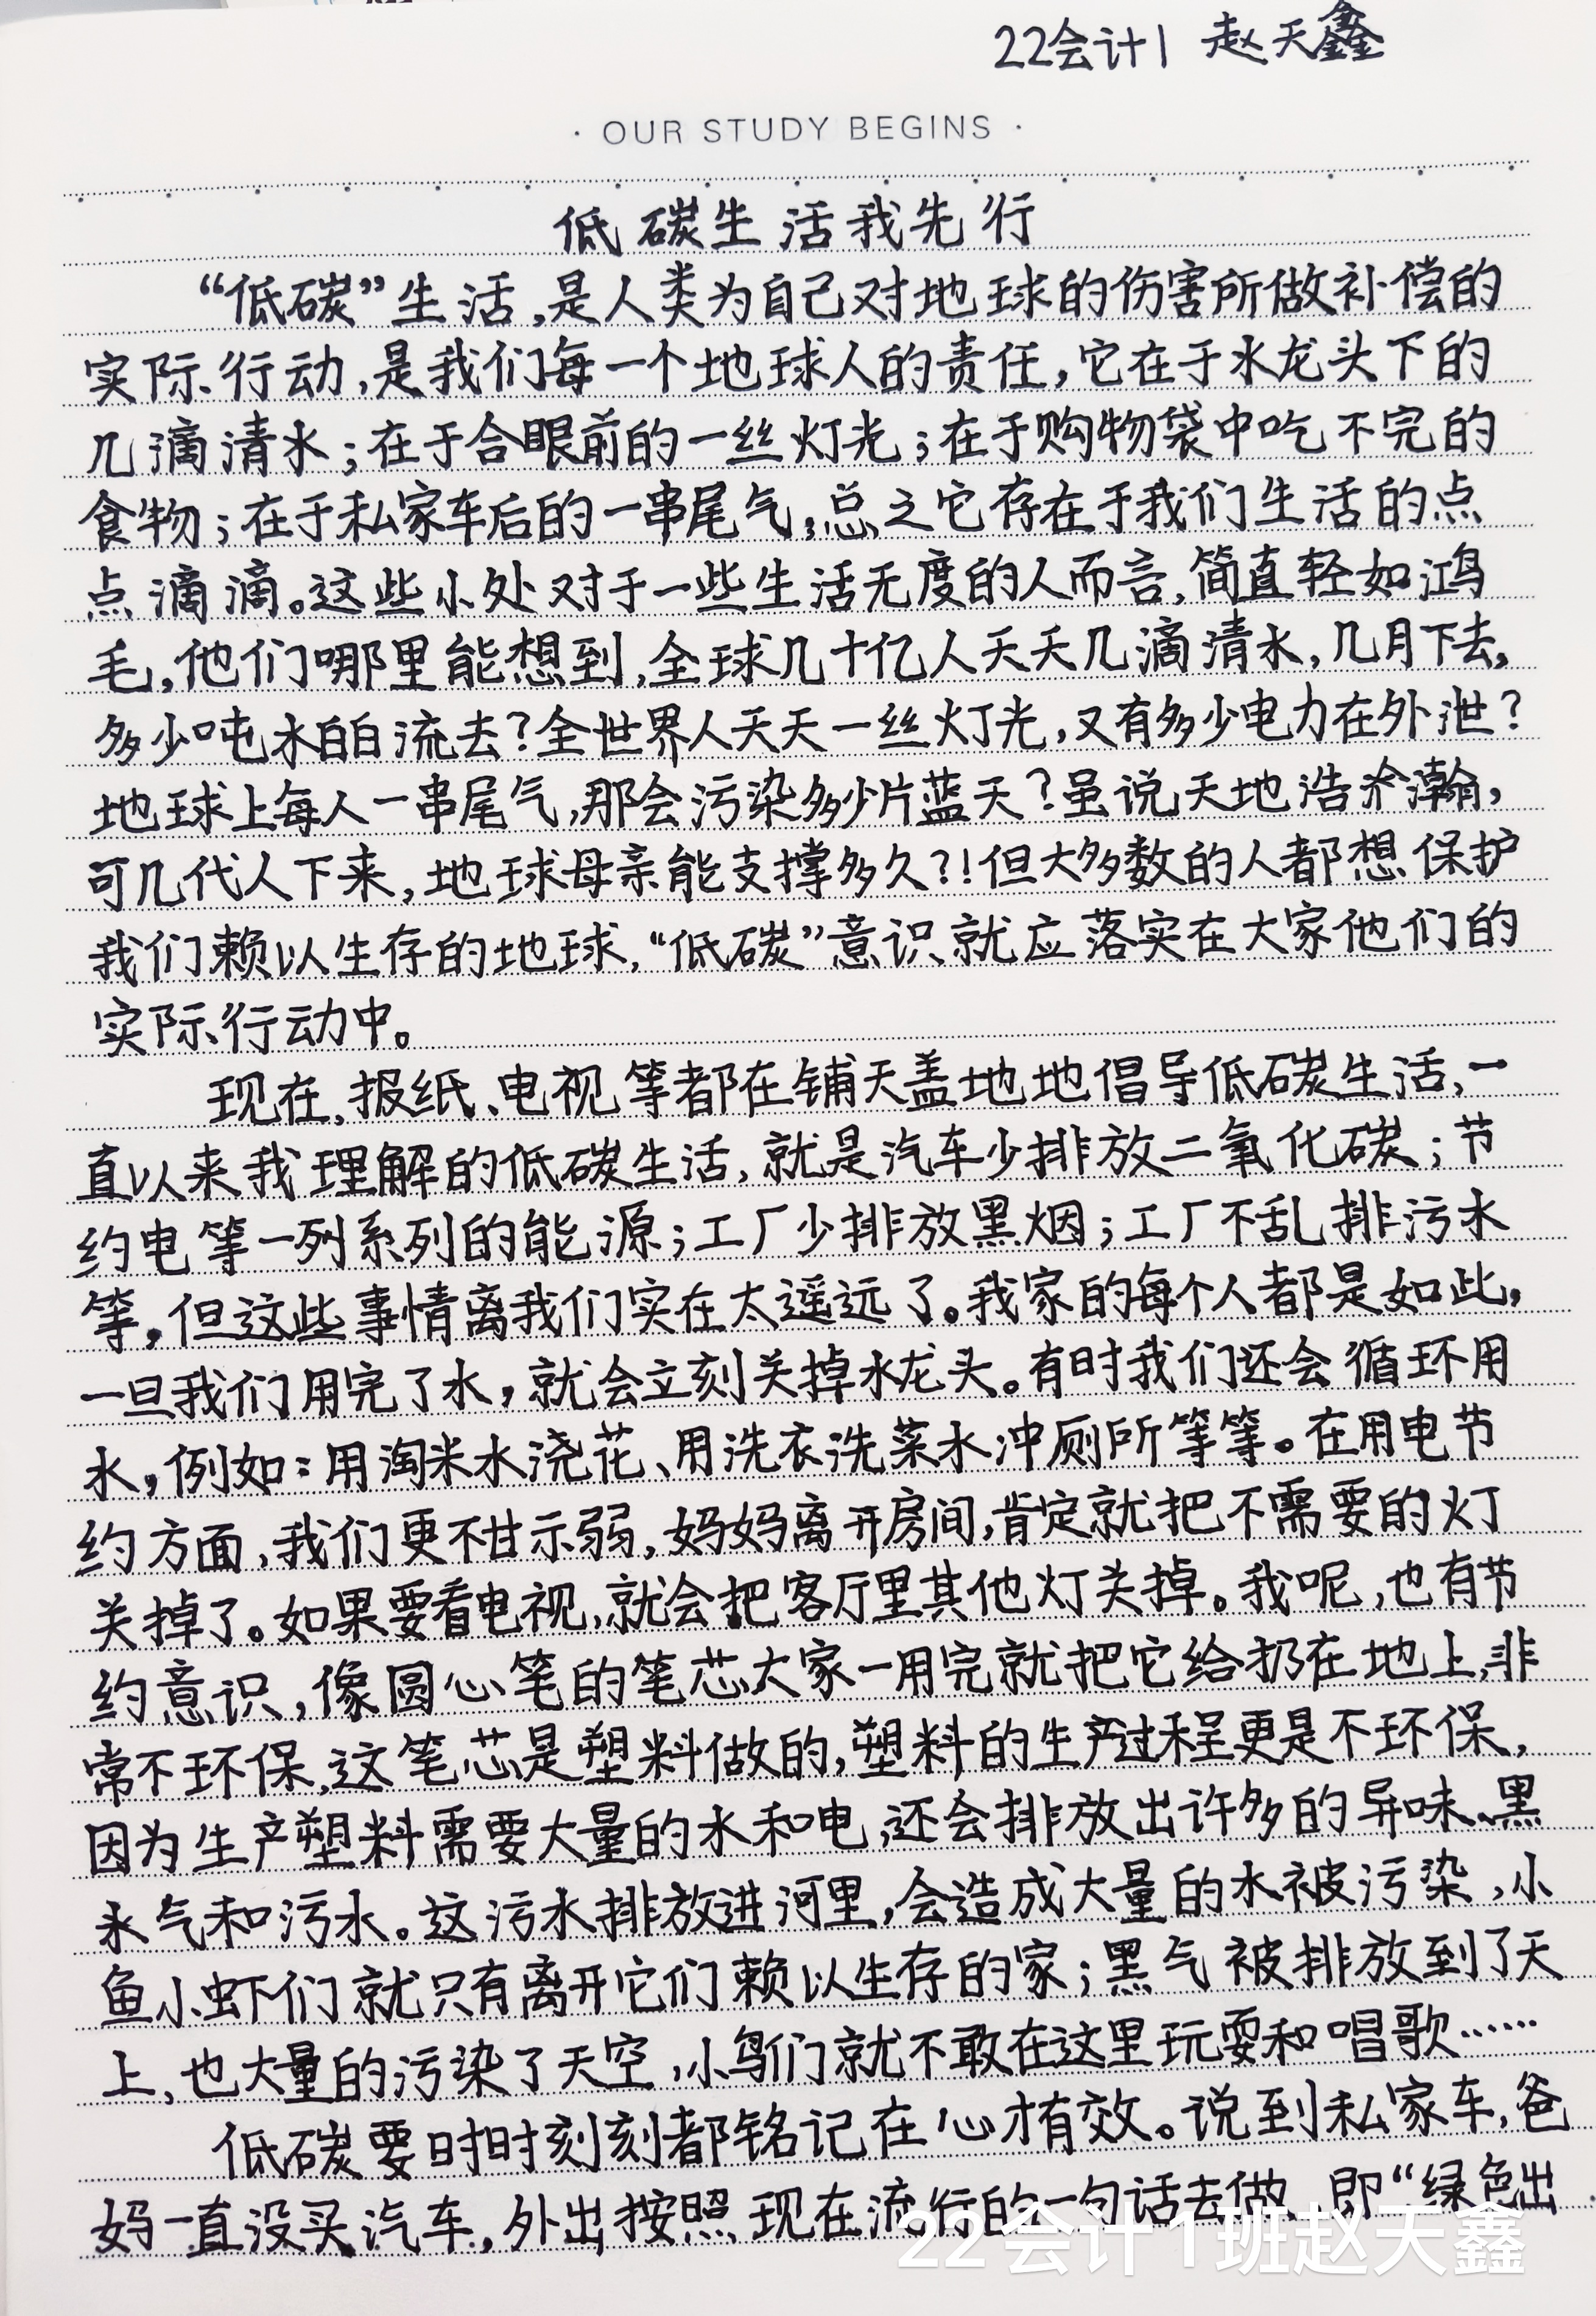 22会计1 赵天鑫
· OUR STUDY BEGINS ·
低碳生活我先行
“低碳”生活,是人类为自己对地球的伤害所做补偿的
实际行动,是我们每一个地球人的责任,它在于水龙头下的
几滴清水;在于合眼前的一丝灯光;在于购物袋中吃不完的
食物;在于私家车后的一串尾气,总之它存在于我们生活的点
点滴滴。这些小处对于一些生活无度的人而言,简直轻如鸿
毛,他们哪里能想到,全球几十亿人天天几滴清水,几月下去,
多少吨水白白流去?全世界人天天一丝灯光,又有多少电力在外泄?
地球上每人一串尾气,那会污染多少片蓝天?虽说天地浩瀚,
可几代人下来,地球母亲能支撑多久?!但大多数的人都想保护
我们赖以生存的地球,“低碳”意识就应落实在大家他们的
实际行动中。
现在,报纸、电视等都在铺天盖地地倡导低碳生活,一
直以来我理解的低碳生活,就是汽车少排放二氧化碳;节
约电等一列系列的能源;工厂少排放黑烟;工厂不乱排污水
等,但这些事情离我们实在太遥远了。我家的每个人都是如此,
一旦我们用完了水,就会立刻关掉水龙头。有时我们还会循环用
水,例如:用淘米水浇花、用洗衣洗菜水冲厕所等等。在用电节
约方面,我们更不甘示弱,妈妈离开房间,肯定就把不需要的灯
关掉了。如果要看电视,就会把客厅里其他灯关掉。我呢,也有节
约意识,像圆心笔的笔芯大家一用完就把它给扔在地上,非
常不环保,这笔芯是塑料做的,塑料的生产过程更是不环保,
因为生产塑料需要大量的水和电,还会排放出许多的异味、黑
永气和污水。这污水排放进河里,会造成大量的水被污染,小
鱼小虾们就只有离开它们赖以生存的家;黑气被排放到了天
上,也大量的污染了天空,小鸟们就不敢在这里玩耍和唱歌……
低碳要时时刻刻都铭记在心才有效。说到私家车,爸
妈一直没买汽车,外出按照现在流行的一句话去做,即“绿色出
22会计1班赵天鑫